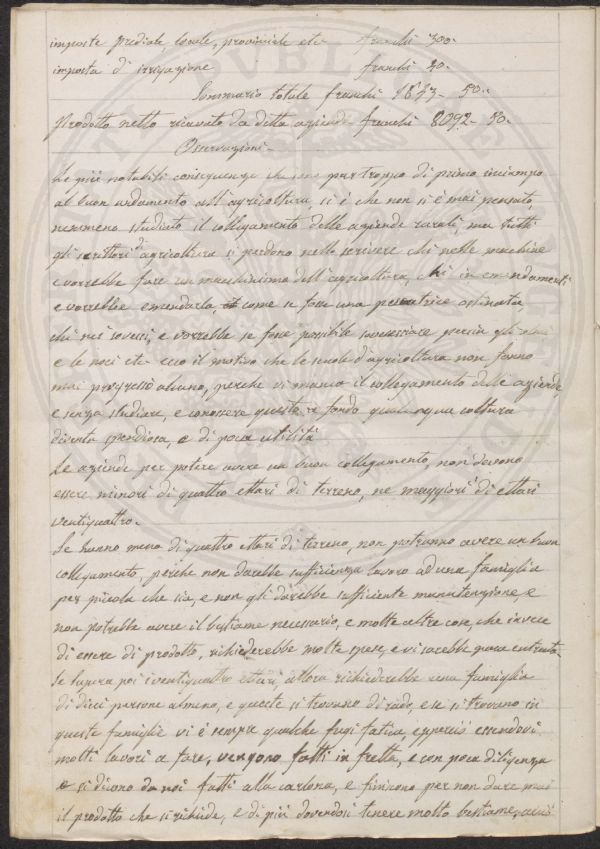 imposte prediale, locale, provinciale etc franchi 300-
imposta d'irrigazione franchi 20-
Sommario totale franchi 1847- 50-
Prodotto netto ricavato da detta azienda franchi 8092- 50-
Osservazioni-
Le più notabili conseguenze che sono pur troppo di primo inciampo
al buon andamento all'agricoltura, si è che non si è mai pensato,
nemmeno studiato il collegamento delle aziende rurali, ma tutti
gli scrittori di agricoltura si perdono nello scrivere chi nelle macchine
e vorrebbe fare un macchinismo dell'agricoltura, chi in emendamenti
e vorrebbe emendarla, come se fosse una peccatrice ostinata,
chi nei sovesci, e vorrebbe se fosse possibile sovesciare persin gli olmi
e le noci etc ecco il motivo che le scuole d'agricoltura non fanno
mai progresso alcuno, perche vi manca il collegamento delle aziende,
e senza studiare, e conoscere questo a fondo qualunque coltura
diventa spendiosa, e di poca utilità
Le aziende per potere avere un buon collegamento, non devono
essere minori di quattro ettari di terreno, ne maggiori di ettari
ventiquattro.
Se hanno meno di quattro ettari di terreno, non potranno avere un buon
collegamento, perche non darebbe sufficienza lavoro ad una famiglia
per picola che sia, e non gli darebbe sufficiente manutenzione, e
non potrebbe avere il bestiame necessario, e molte altre cose, che invece
di essere di prodotto, richiederebbe molte spese, e vi sarebbe poca entrata.
Se supera poi i ventiquattro ettari, allora richiederebbe una famiglia
di dieci persone almeno, e queste si trovano di rado, e se si trovano in
queste famiglie vi è sempre qualche fugi fatica, epperciò essendovi
molti lavori a fare, vengono fatti in fretta, e con poca diligenza
e si dicono da noi fatti alla carlona, e finiscono per non dare mai
il prodotto che si richiede, e di più dovendosi tenere molto bestiame,